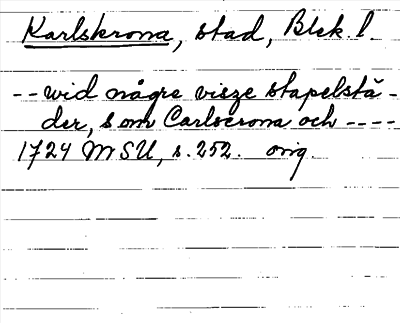 Karlskrona, stad, Blek l.
-- wid någre visze stapelstä-
der, som Carlscrona och ----
1724 MSU, s. 252. orig.